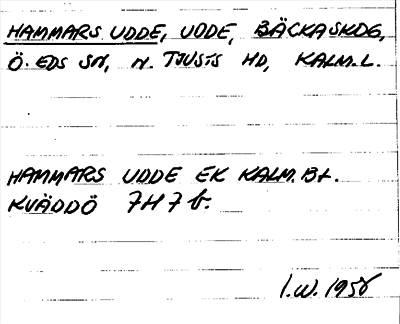 HAMMARS UDDE, UDDE, BÄCKASKOG,
Ö. EDS SN, N. TJUSTS HD, KALM. L.
HAMMARS UDDE EK KALM. Bl.
KVÄDDÖ 7H7 b.
I.W. 1956